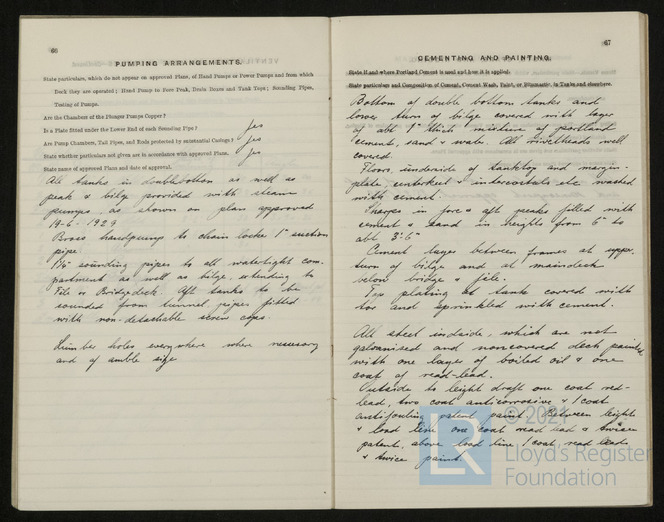 66
PUMPING ARRANGEMENTS.
State particulars, which do not appear on approved Plans, of Hand Pumps or Power Pumps and from which
Deck they are operated; Hand Pump to Fore Peak, Drain Boxes and Tank Tops; Sounding Pipes,
Testing of Pumps.
Are the Chambers of the Plunger Pumps Copper?
Is a Plate fitted under the Lower End of each Sounding Pipe? Yes
Are Pump Chambers, Tail Pipes, and Rods protected by substantial Casings? Yes
State whether particulars not given are in accordance with approved Plans. Yes
State name of approved Plan and date of approval.
All tanks in doublebottom as well as
peak & bilge provided with steam
pumps as shown on plan approved
19-6-1929
Brass handpump to chain locker 1" suction
pipe.
1½" sounding pipes to all watertight com-
partment as well as bilge, extending to
Bridgedeck. Aft tanks to be
sounded from tunnel, pipes fitted
with non-detachable screw caps.
Limber holes everywhere where necessary
and of amble size
67
CEMENTING AND PAINTING.
State if and where Portland Cement is used and how it is applied.
State particulars and Composition of Cement, Cement Wash, Paint, or Bitumastic, in Tanks and elsewhere.
Bottom of double bottom tanks and
lower turn of bilge covered with layer
of abt 1" thick mixture of portland
cement, sand & water. All rivetheads well
covered.
Floors, underside of tanktop and margin-
plate, centerkeel & intercostals etc washed
with cement.
Sharps in fore & aft peaks filled with
cement & sand in heights from 6" to
abt 3'-6"
Cement layer between frames at upper
turn of bilge and at maindeck
below bridge &
Top plating of tank covered with
tar and sprinkled with cement.
All steel indside, which are not
galvanised and noncovered deck painted
with one layer of boiled oil & one
coat of read-lead.
Outside to leight draft one coat red-
lead, two coat anticorrosive & 1 coat
antifouling patent paint. Between leight
& load line one coat read lead & twice
patent, above load line 1 coat, read lead
& twice paint.
© 2021
LR
Lloyd's Register
Foundation